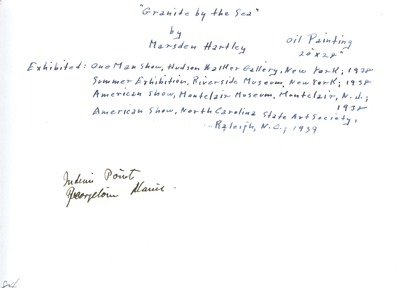 "Granite by the Sea"
by
Marsden Hartley
Oil Painting
20"x28"
Exhibited: One Man Show, Hudson Walker Gallery, New York; 1938
Summer Exhibition, Riverside Museum, New York; 1938
American Show, Montclair Museum, Montclair, N.J.;
1938
American Show, North Carolina State Art Society,
...Raleigh, N.C.; 1939
Indian Point
Georgetown Maine.